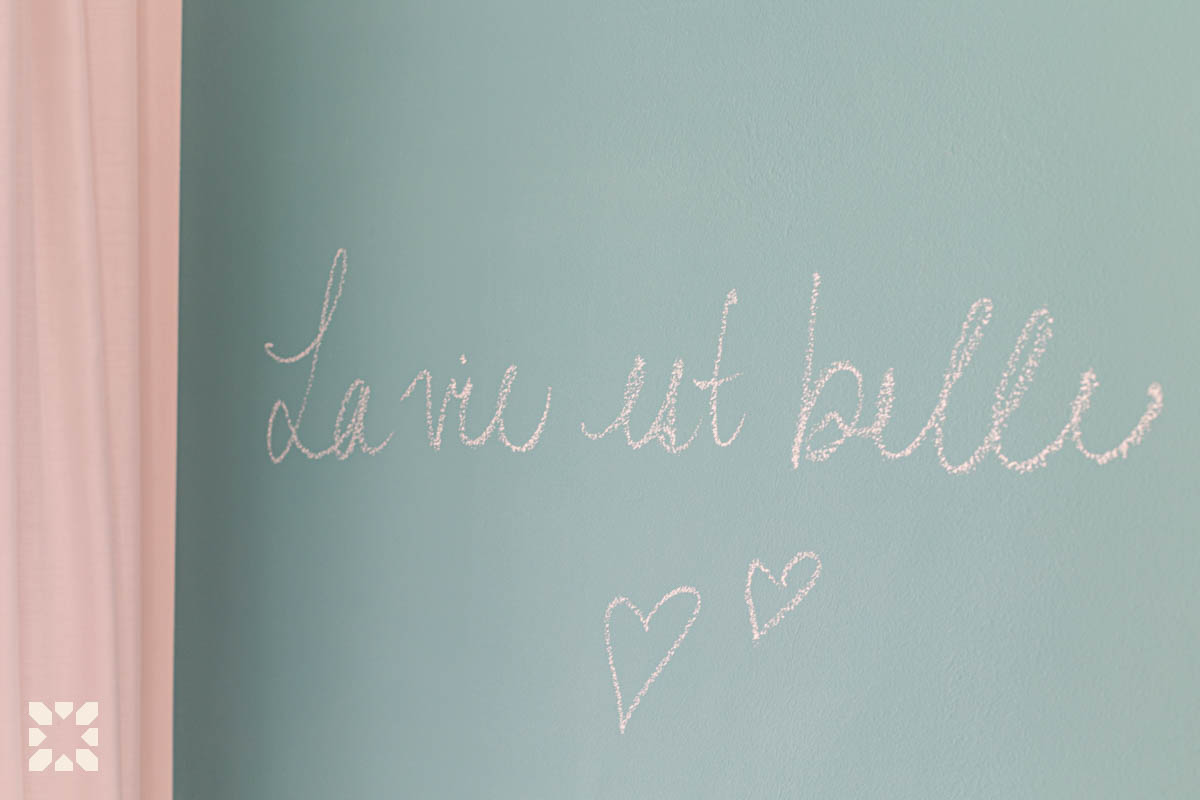 La vie est belle